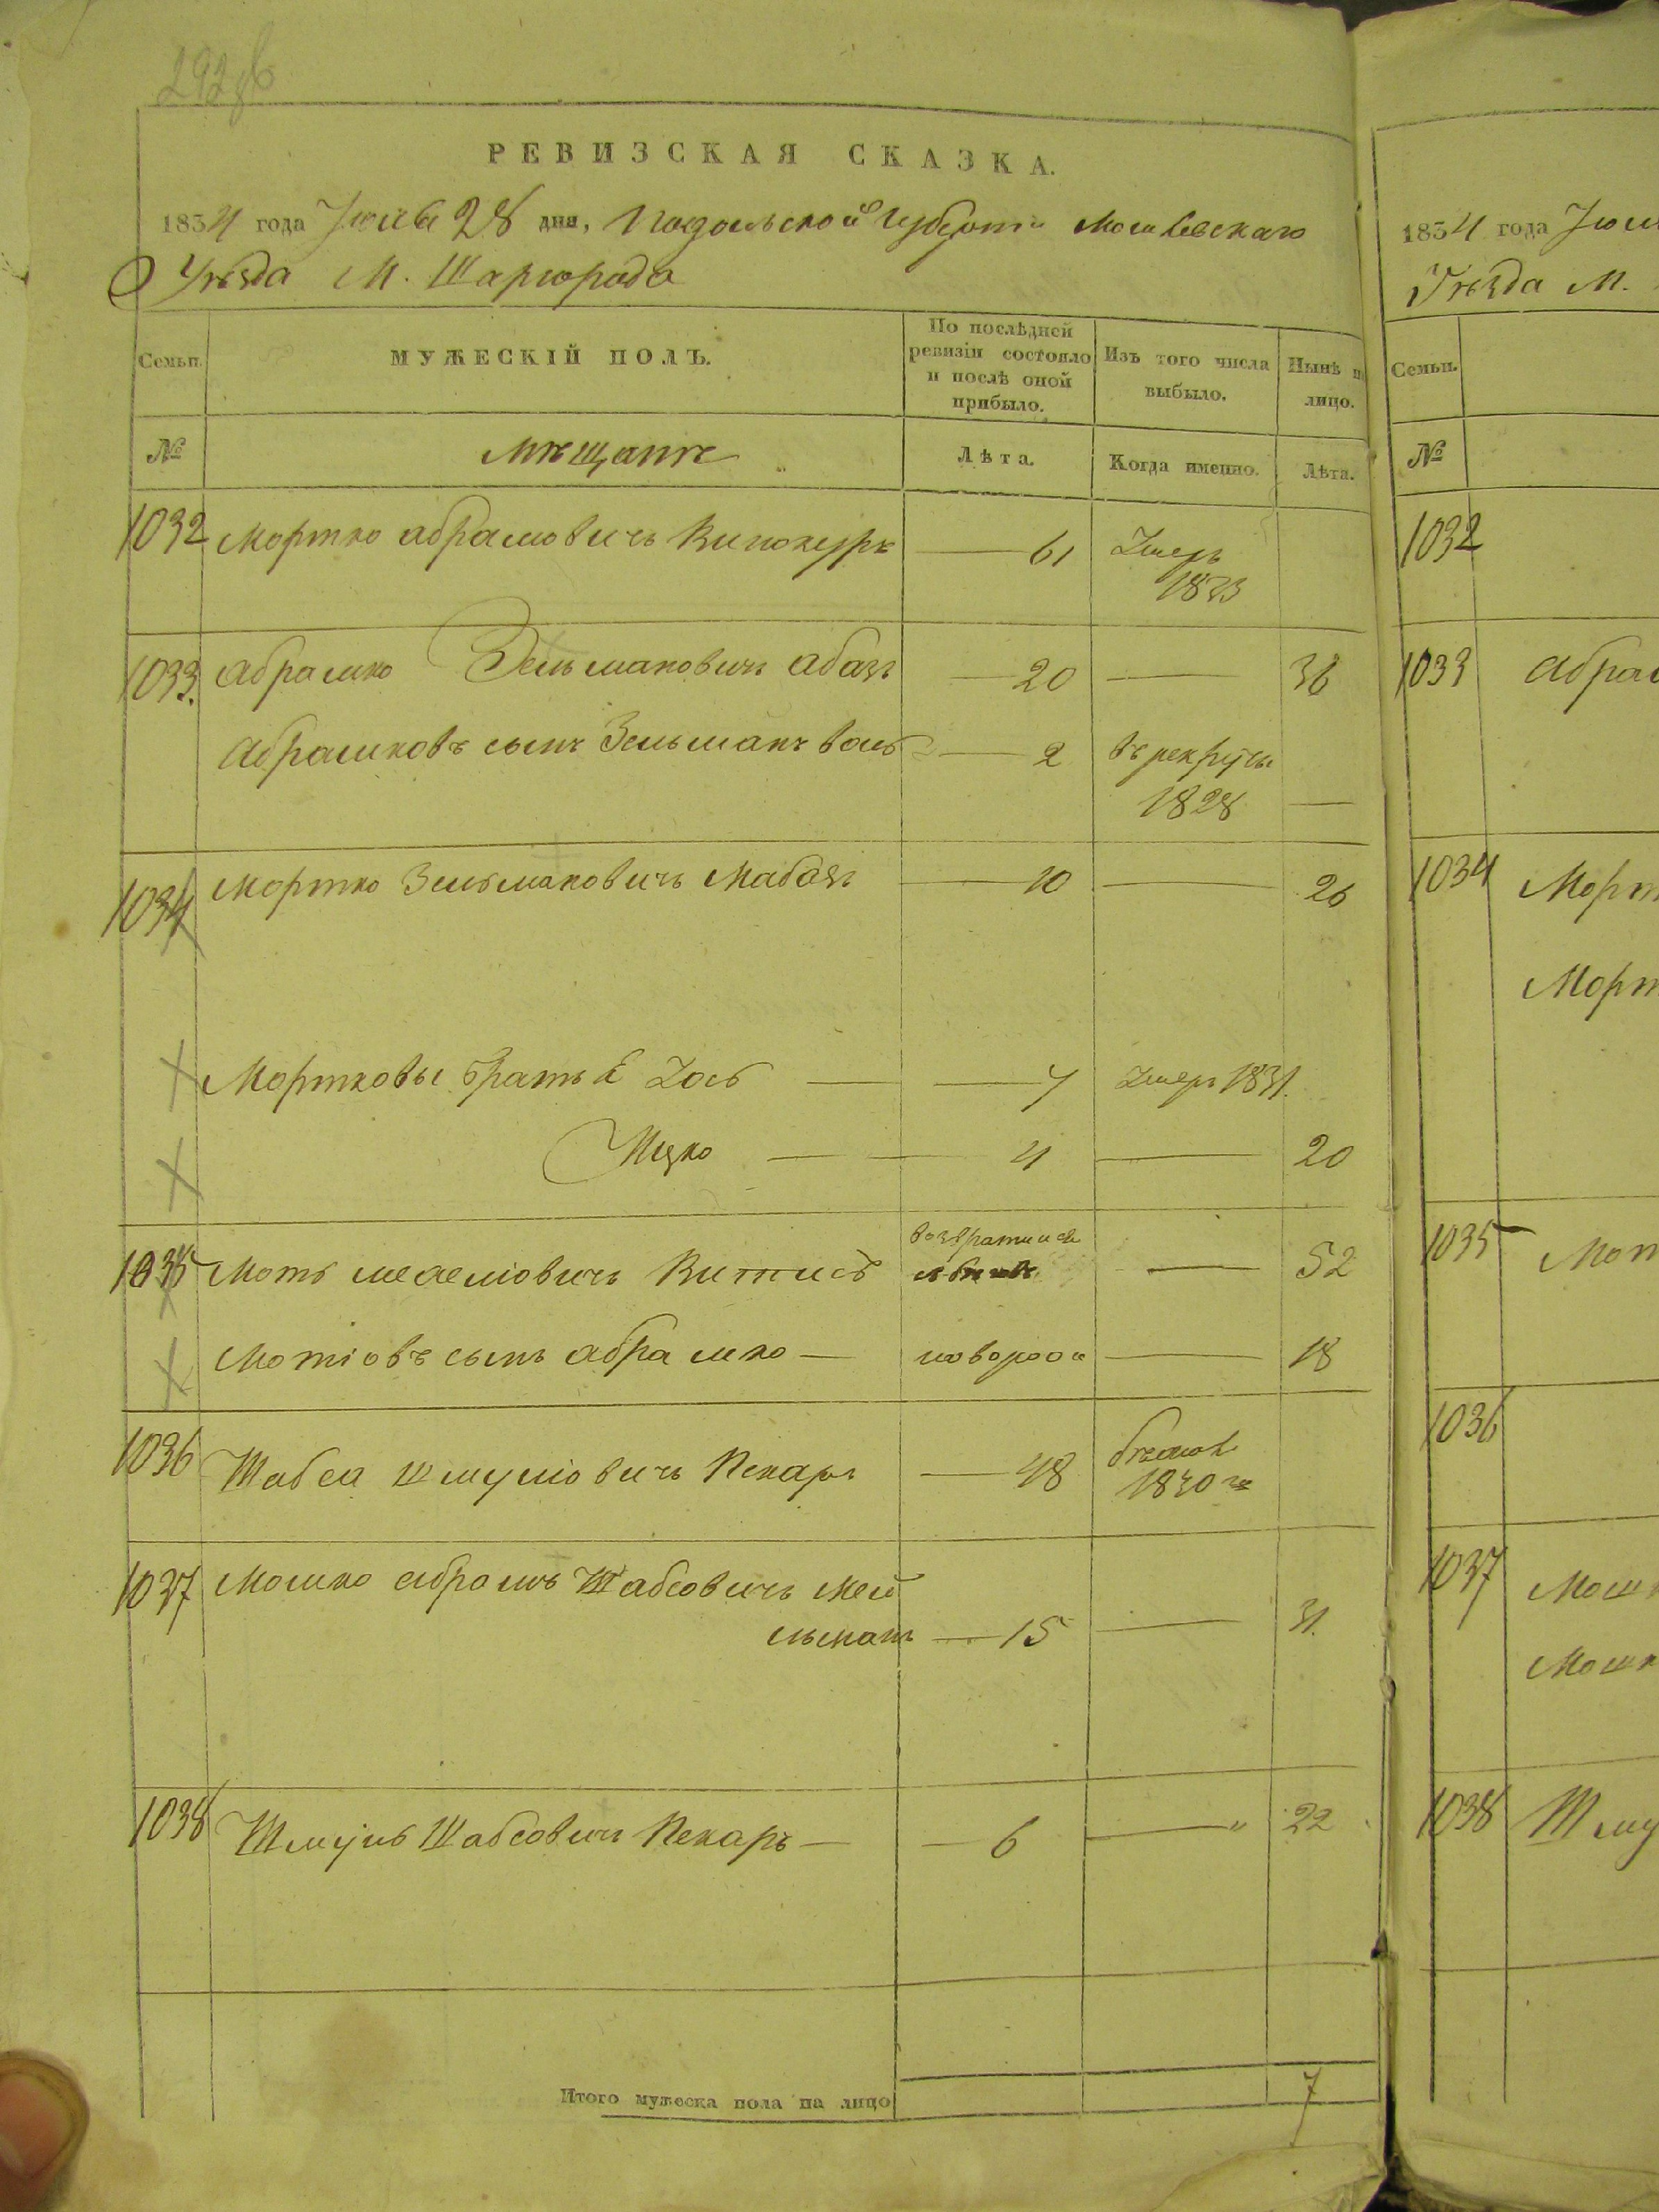 РЕВИЗСКАЯ СКАЗКА.
1834 года Іюля 28 дня, Подольской Губерніи Могилевскаго
Уѣзда М. Шаргорода
Семьи.
МУЖЕСКІЙ ПОЛЪ.
По послѣдней ревизіи состояло и послѣ оной прибыло.
Изъ того числа выбыло.
Нынѣ на лицо.
№
Мѣщане
Лѣта.
Когда именно.
Лѣта.
1032 Мортко Абрамовичъ Винокуръ — 61 Умеръ
1833
1033. Абрамко Зельмановичъ — 20 — 36
Абрамковъ сынъ Зельманъ Воль — 2 въ рекруты
1828 —
1034 Мортко Зельмановичъ — 10 — 26
Мортковы братья — 7 Умеръ 1831.
Ицко — 4 — 20
1035 Моть Витись — 52
Мотіовъ сынъ Абрамко — новорож — 18
1036 Шабса Шмуліовичъ Пекарь — 48
1830 го
1037 Мошко Абрамъ Шабсовичъ
— 15 — 31.
1038 Шмуль Шабсовичъ Пекарь — 6 — 22
Итого мужеска пола на лицо 7
1834 года Іюл
Уѣзда М.
Семьи.
№
1032
1033 Абрам
1034 Морт
Морт
1035 Мот
1036
1037 Мошк
Мошк
1038 Шму